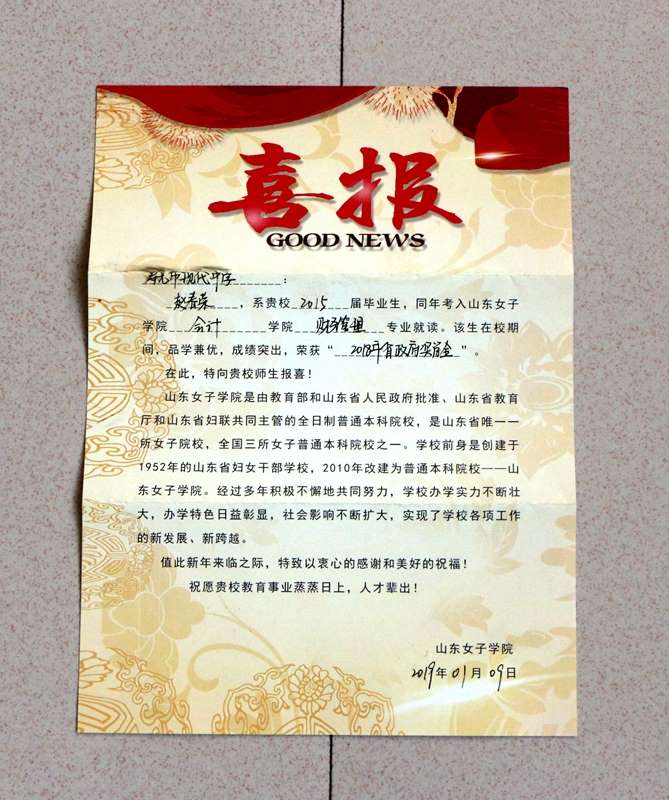 喜报
GOOD NEWS
寿光市现代中学：
赵春荣，系贵校2015届毕业生，同年考入山东女子
学院会计学院财务管理专业就读。该生在校期
间，品学兼优，成绩突出，荣获“2018年省政府奖学金”。
在此，特向贵校师生报喜！
山东女子学院是由教育部和山东省人民政府批准、山东省教育
厅和山东省妇联共同主管的全日制普通本科院校，是山东省唯一一
所女子院校，全国三所女子普通本科院校之一。学校前身是创建于
1952年的山东省妇女干部学校，2010年改建为普通本科院校——山
东女子学院。经过多年积极不懈地共同努力，学校办学实力不断壮
大，办学特色日益彰显，社会影响不断扩大，实现了学校各项工作
的新发展、新跨越。
值此新年来临之际，特致以衷心的感谢和美好的祝福！
祝愿贵校教育事业蒸蒸日上，人才辈出！
山东女子学院
2019年01月09日